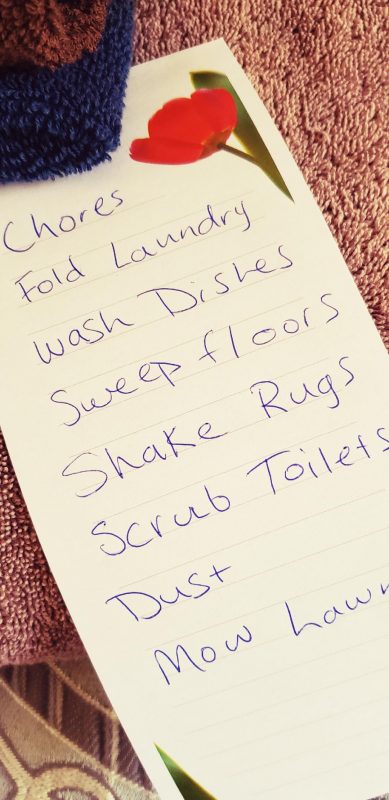 Chores
Fold Laundry
Wash Dishes
Sweep floors
Shake Rugs
Scrub Toilets
Dust
Mow Lawn